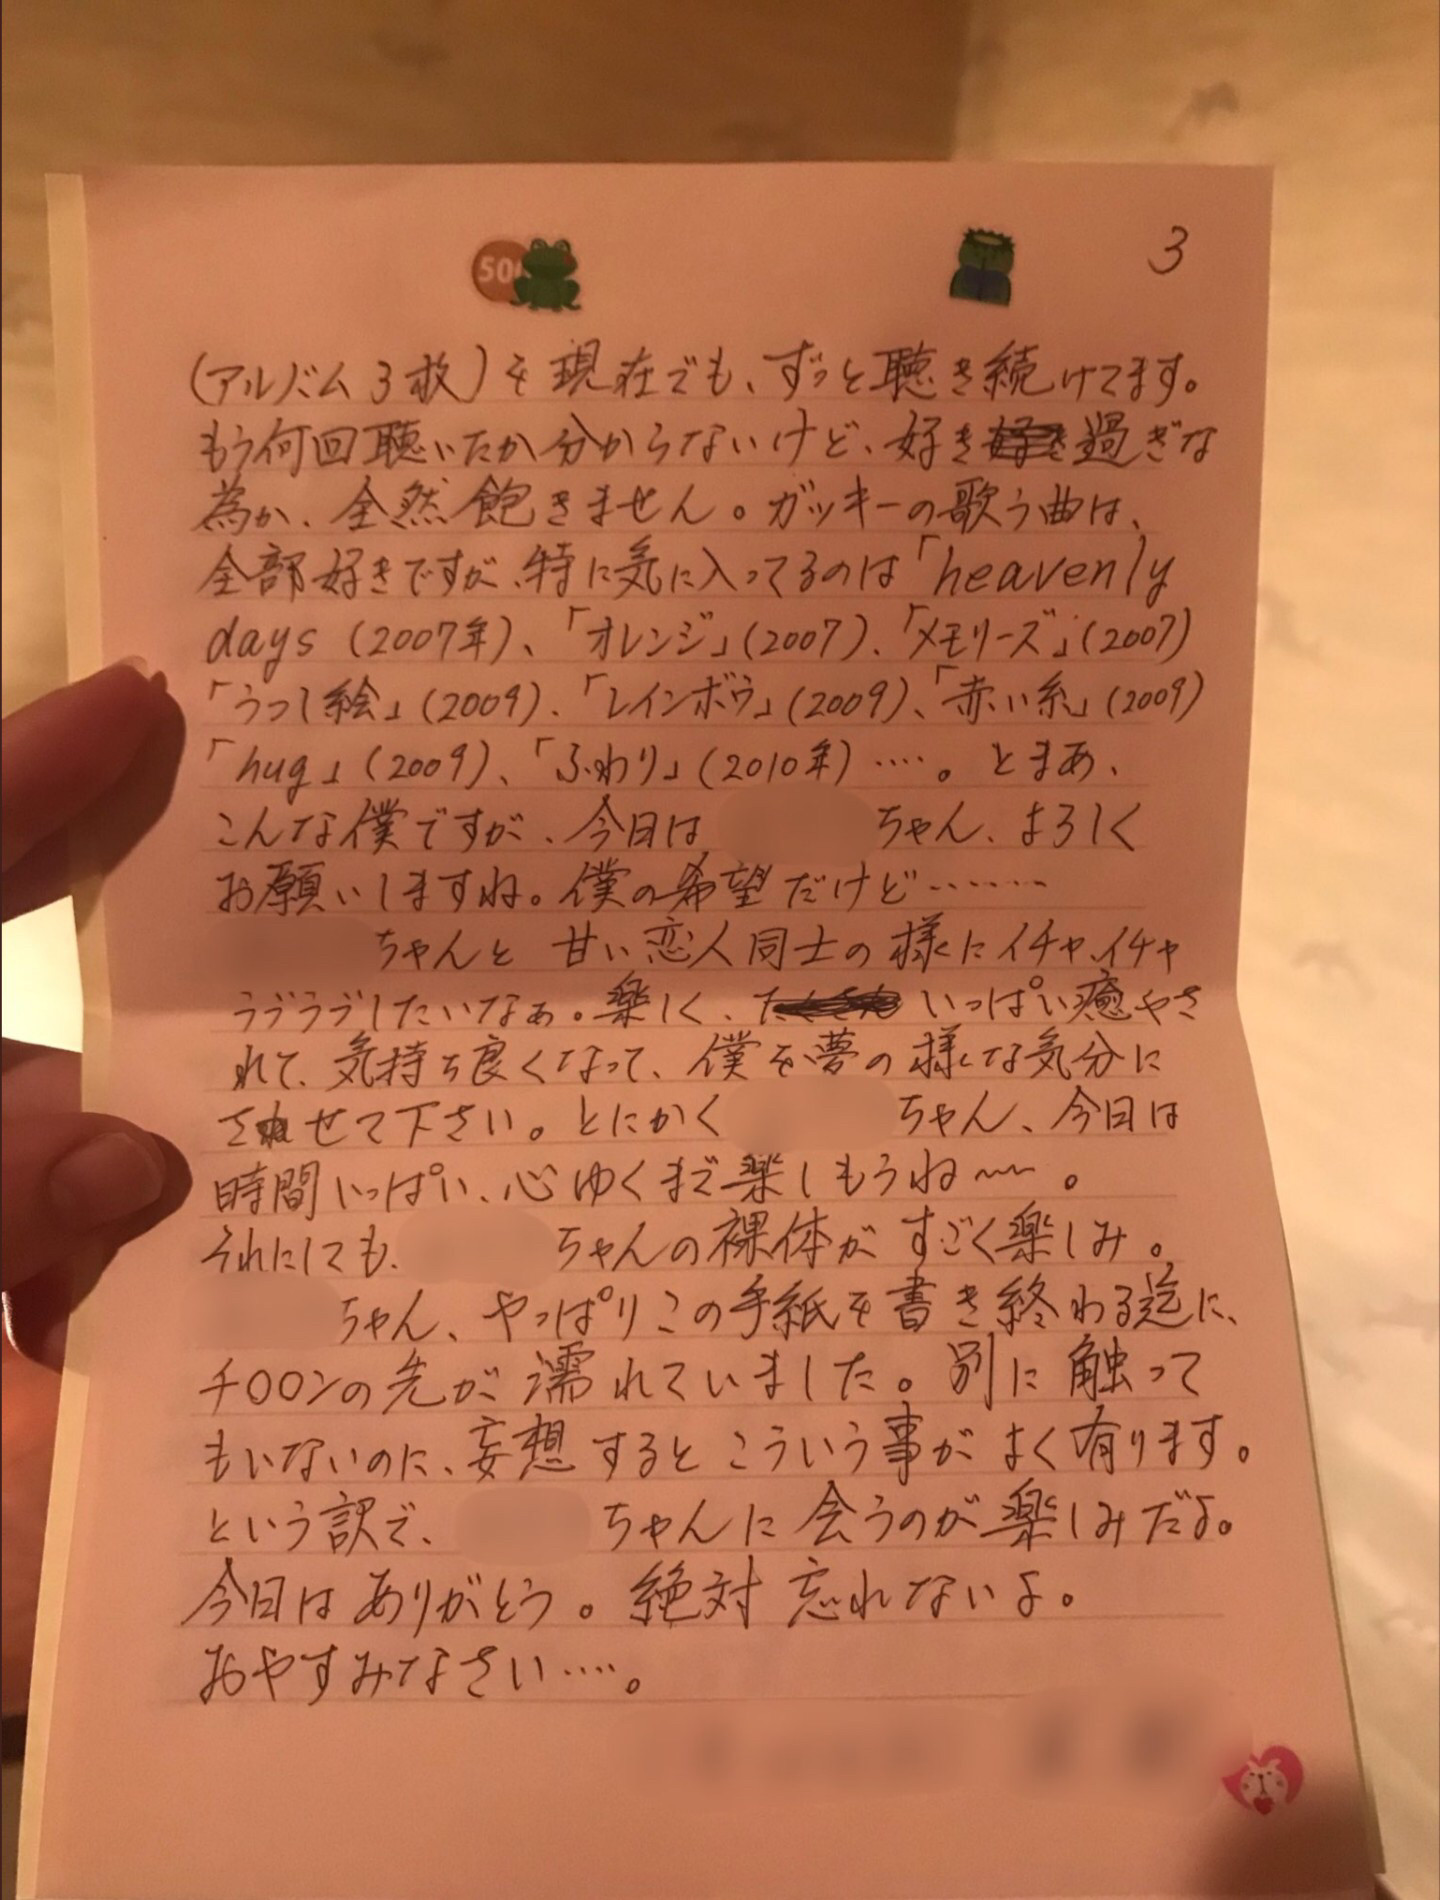 50
3
(アルバム3枚)を現在でも、ずっと聴き続けてます。
もう何回聴いたか分からないけど、好き過ぎな
為か、全然飽きません。ガッキーの歌う曲は、
全部好きですが、特に気に入ってるのは「heavenly
days (2007年)、「オレンジ」(2007)、「メモリーズ」(2007)
「うつし絵」(2009)、「レインボウ」(2009)、「赤い糸」(2009)
「hug」(2009)、「ふわり」(2010年)‥‥。とまあ、
こんな僕ですが、今日は ちゃん、よろしく
お願いしますね。僕の希望だけど‥‥‥‥
ちゃんと 甘い恋人同士の様にイチャイチャ
ラブラブしたいなぁ。楽しく、いっぱい癒やさ
れて、気持ち良くなって、僕を夢の様な気分に
させて下さい。とにかく ちゃん、今日は
時間いっぱい、心ゆくまで楽しもうね〜〜。
それにしても、 ちゃんの裸体がすごく楽しみ。
ちゃん、やっぱりこの手紙を書き終わる迄に、
チ〇〇ンの先が濡れていました。別に触って
もいないのに、妄想するとこういう事がよく有ります。
という訳で、 ちゃんに会うのが楽しみだよ。
今日はありがとう。絶対忘れないよ。
おやすみなさい‥‥。